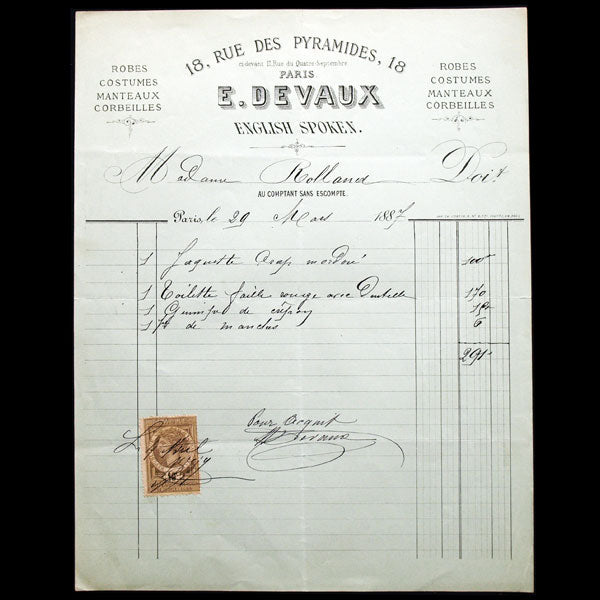 18, RUE DES PYRAMIDES, 18
ci-devant 17, Rue du Quatre-Septembre
PARIS
E. DEVAUX
ENGLISH SPOKEN.
ROBES
COSTUMES
MANTEAUX
CORBEILLES
ROBES
COSTUMES
MANTEAUX
CORBEILLES
Madame Rolland Doit
AU COMPTANT SANS ESCOMPTE
Paris, le 29 Mars 1887
1 Jaquette drap mordoré 100
1 Toilette faille rouge avec Dentelle 170
1 de crépon 15
1 Pre de manches 6
291
Pour acquit
Devaux
Le